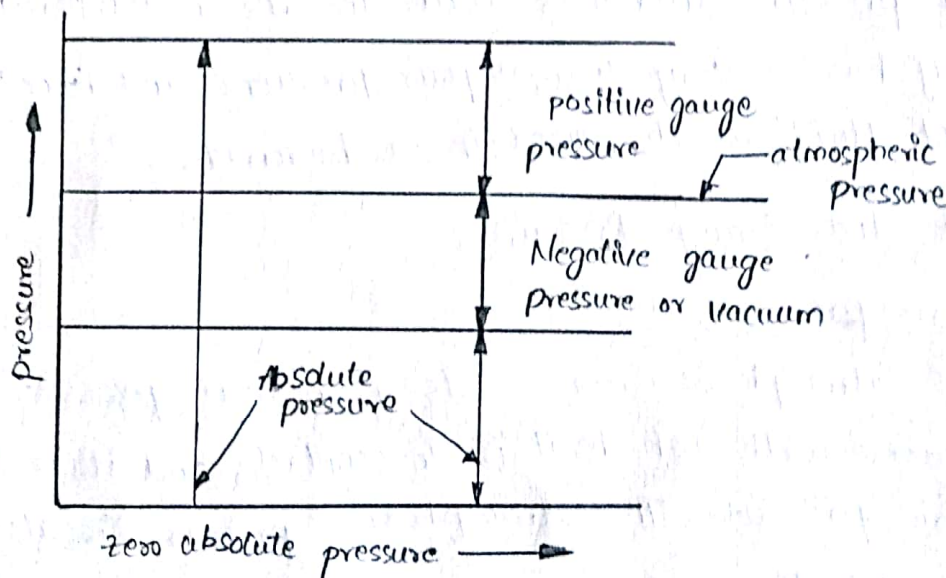 positive gauge
pressure
atmospheric
pressure
Negative gauge
pressure or vacuum
pressure
Absolute
poessure
zeoo absolute pressure